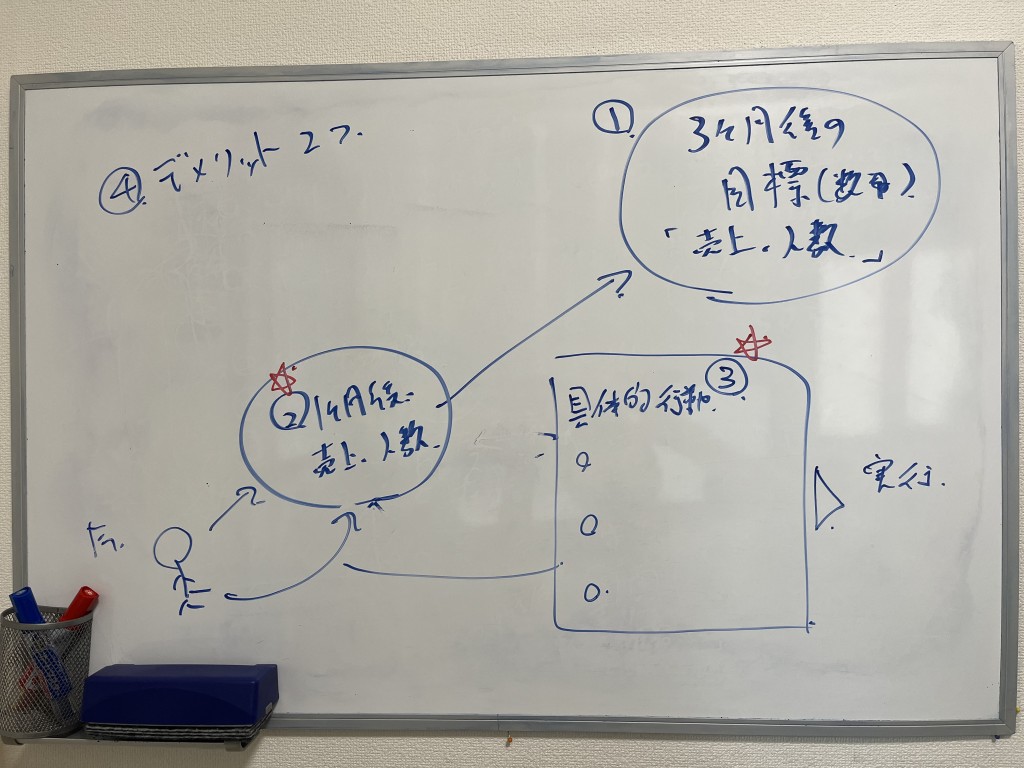 ① 3ヶ月後の
目標(数字).
「売上。人数。」
④ デメリット 2つ.
② 1ヶ月後.
売上。人数.
③
具体的行動.
実行.